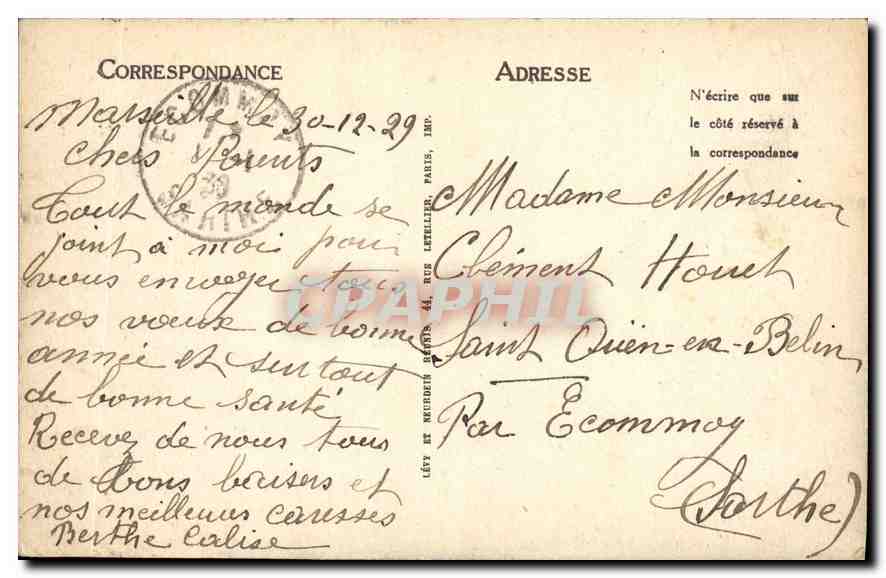 CORRESPONDANCE
Marseille le 30-12-29
Chers Parents
Tout le monde se
joint à moi pour
vous envoyer tous
nos vœux de bonne
année et surtout
de bonne santé
Recevez de nous tous
de bons baisers et
nos meilleures caresses
Berthe Calise
ECOMMOY
30
SARTHE
LÉVY ET NEURDEIN RÉUNIS, 44, RUE LETELLIER, PARIS, IMP.
ADRESSE
N'écrire que sur
le côté réservé à
la correspondance
Madame Monsieur
Clément Houet
Saint Ouën-en-Belin
Par Ecommoy
(Sarthe)
CPAPHIL